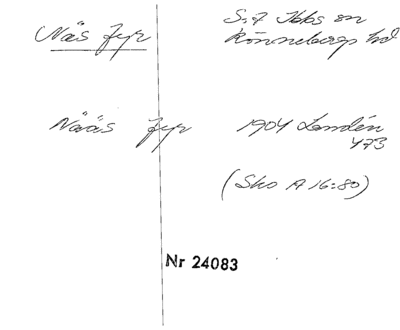 Näs fyr
S:t Ibbs sn
Rönnebergs hd
Nääs fyr
1904 Landén
473
(Sko A 16:80)
Nr 24083